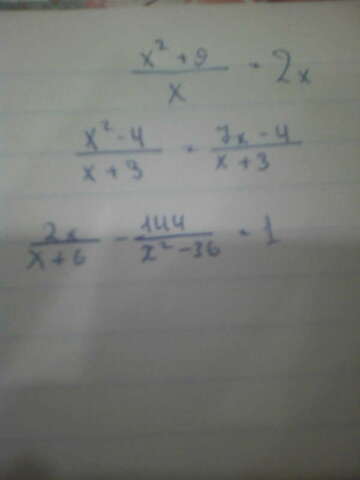 x² + 9 / x = 2x
x² - 4 / x + 3 = 7x - 4 / x + 3
2x / x + 6 - 144 / x² - 36 = 1